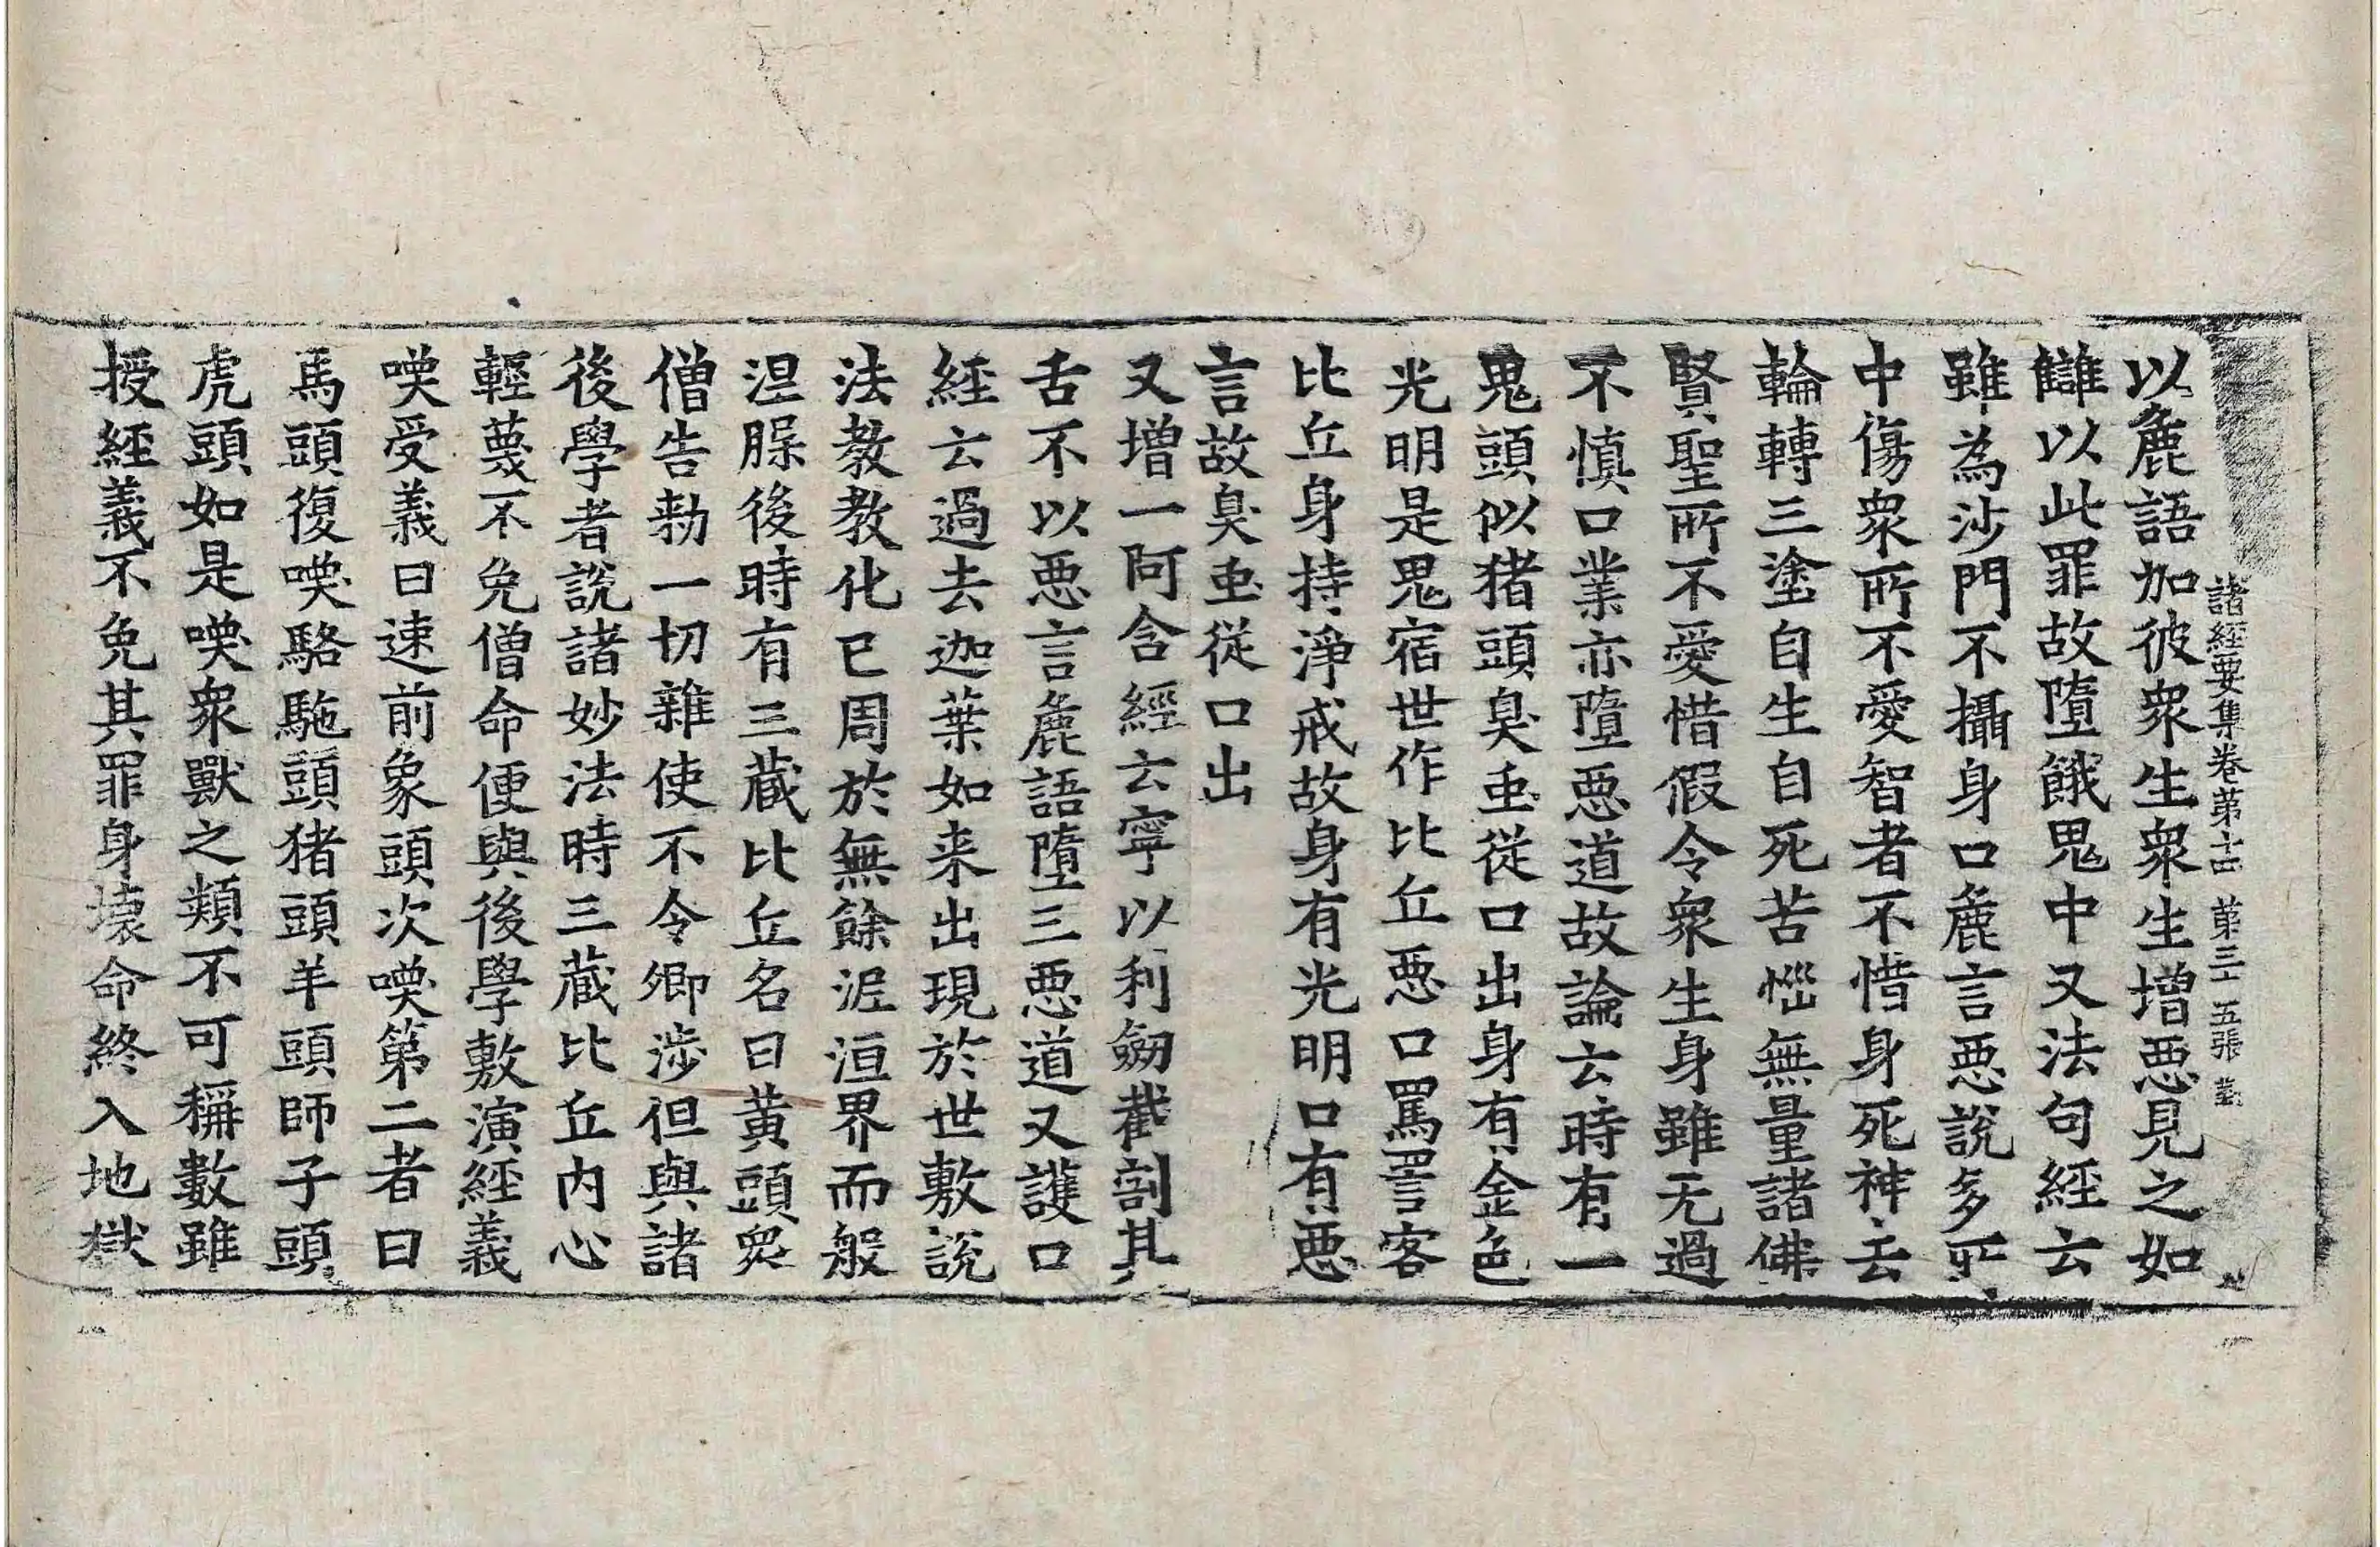 諸經要集卷第十四 第三十五張
以麁語加彼衆生衆生增惡見之如
讎以此罪故墮餓鬼中又法句經云
雖為沙門不攝身口麁言惡說多所
中傷衆所不愛智者不惜身死神去
輪轉三塗自生自死苦惱無量諸佛
賢聖所不愛惜假令衆生身雖无過
不慎口業亦墮惡道故論云時有一
鬼頭似猪頭臭虫從口出身有金色
光明是鬼宿世作比丘惡口罵詈客
比丘身持淨戒故身有光明口有惡
言故臭虫從口出
又增一阿含經云寧以利劒截割其
舌不以惡言麁語墮三惡道又護口
經云過去迦葉如来出現於世敷說
法教教化已周於無餘泥洹界而般
涅脲後時有三藏比丘名曰黃頭衆
僧告勑一切雜使不令卿涉但與諸
後學者說諸妙法時三藏比丘内心
輕蔑不免僧命便與後學敷演經義
喚受義曰速前象頭次喚第二者曰
馬頭復喚駱駞頭猪頭羊頭師子頭
虎頭如是喚衆獸之類不可稱數雖
授經義不免其罪身壞命終入地獄